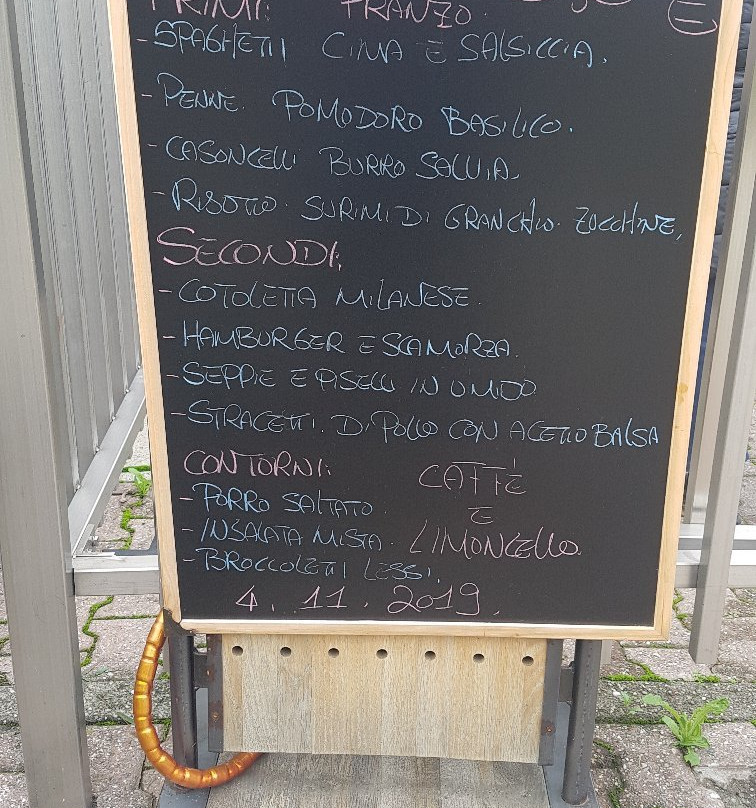 PRIMI: PRANZO. €
- SPAGHETTI CIMA E SALSICCIA.
- PENNE. POMODORO BASILICO.
- CASONCELLI BURRO SALVIA
- RISOTTO. SURIMI DI GRANCHIO. ZUCCHINE,
SECONDI:
- COTOLETTA MILANESE.
- HAMBURGER E SCAMORZA.
- SEPPIE E PISELLI IN UMIDO
- STRACETTI. DI POLLO CON ACETO BALSA
CONTORNI: CAFFÈ
- PORRO SALTATO E
- INSALATA MISTA. LIMONCELLO.
- BROCCOLETTI LESSI.
4. 11. 2019.